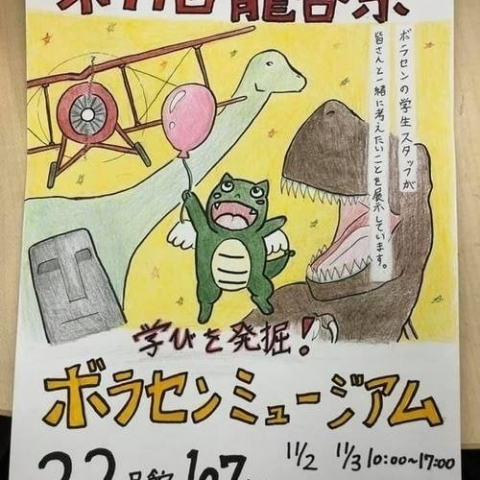 龍谷祭
ボラセンの学生スタッフが
皆さんと一緒に考えたいことを展示しています。
学びを発掘!
ボラセンミュージアム
22号館 107
11/2 11/3 10:00~17:00